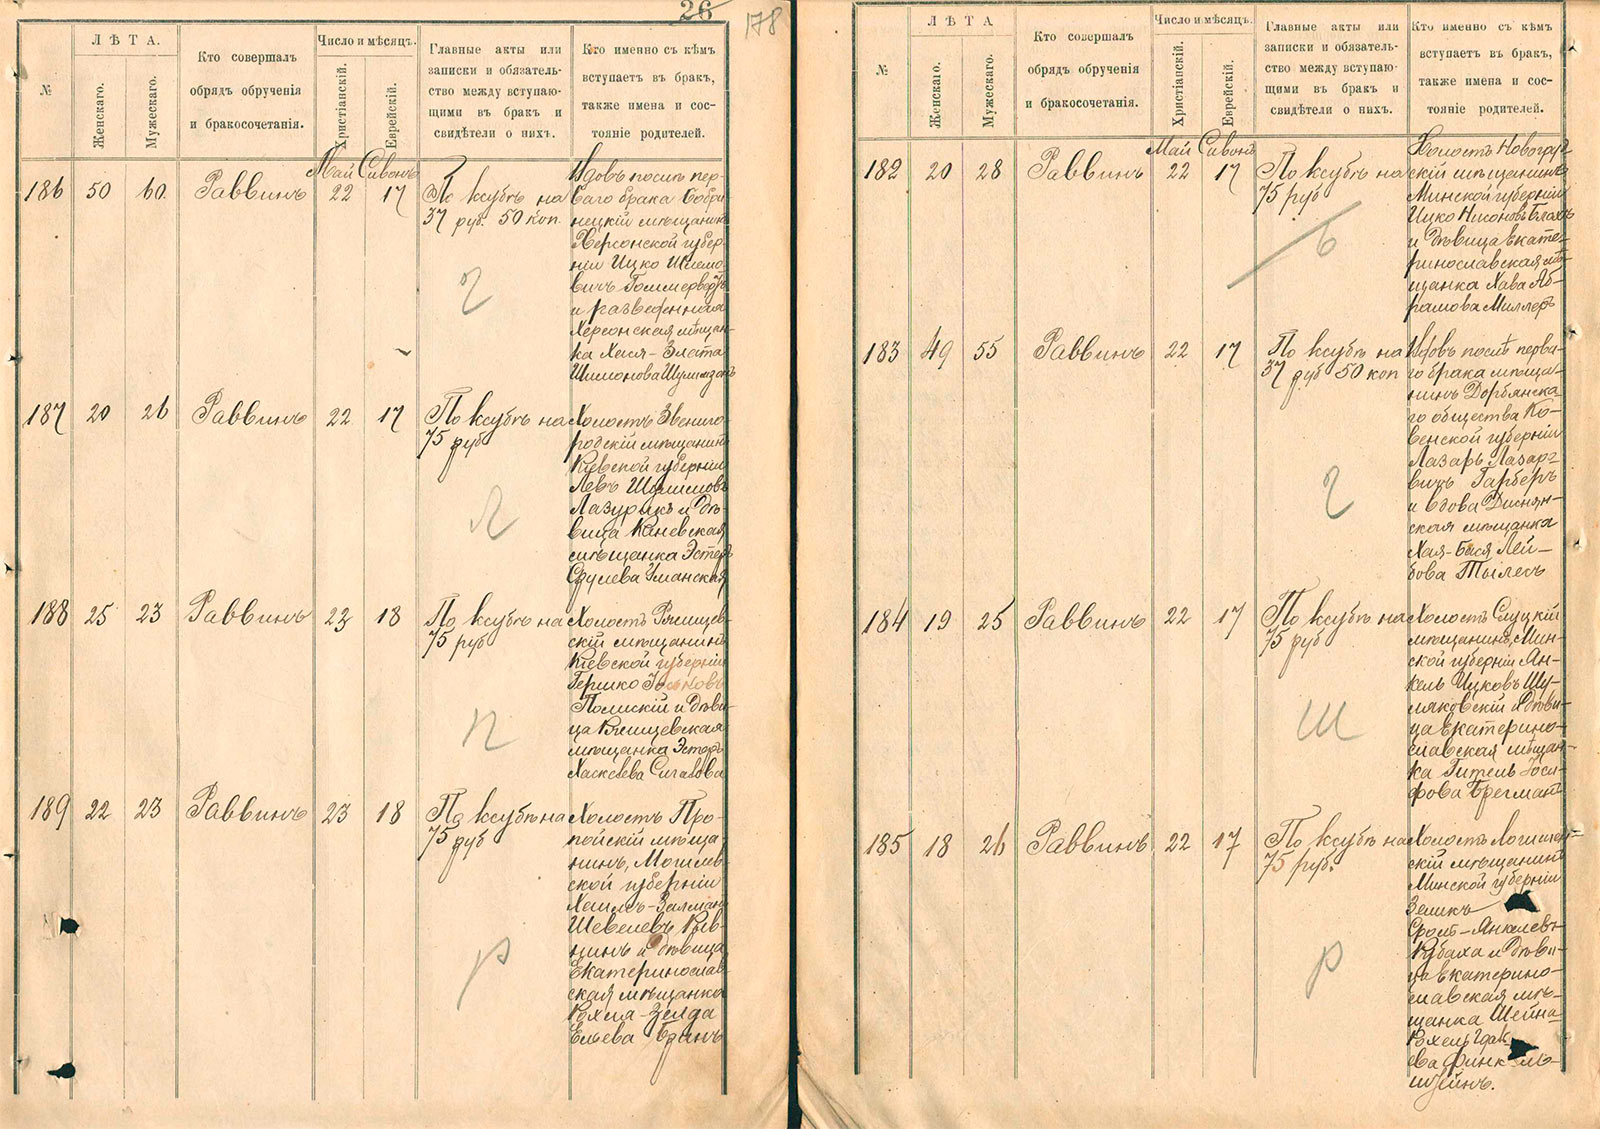 26
178
№
ЛѢТА.
Женскаго.
Мужескаго.
Кто совершалъ
обрядъ обрученія
и бракосочетанія.
Число и мѣсяцъ.
Христіанскій.
Еврейскій.
Главные акты или
записки и обязатель-
ство между вступаю-
щими въ бракъ и
свидѣтели о нихъ.
Кто именно съ кѣмъ
вступаетъ въ бракъ,
также имена и сос-
тояніе родителей.
Май Сивонъ
186 50 60 Раввинъ 22 17
По ксубѣ на
37 руб. 50 коп
Вдовъ послѣ пер-
ваго брака Бобри-
нецкій мѣщанинъ
Херсонской губер-
ніи Ицко Шлемо-
вичъ
и разведенная
Херсонская мѣщан-
ка Хая-Злата
Шимонова
187 20 26 Раввинъ 22 17
По ксубѣ на
75 руб
Холостъ Звениго-
родскій мѣщанинъ
Кіевской губерніи
Левъ Шулимовъ
Лазурикъ и дѣ-
вица Каневская
мѣщанка Эстеръ
Срулева Уманская
188 25 23 Раввинъ 22 18
По ксубѣ на
75 руб
Холостъ Ржищев-
скій мѣщанинъ
Кіевской губерніи
Гершко Іосьновъ
Полискій и дѣви-
ца Ржищевская
мѣщанка Эстеръ
Хаскелева Сигалова
189 22 23 Раввинъ 23 18
По ксубѣ на
75 руб
Холостъ Про-
пойскій мѣща-
нинъ, Могилев-
ской губерніи
Хаимъ-Залманъ
Шевелевъ Рыв-
кинъ и дѣвица
Екатеринослав-
ская мѣщанка
Рохля-Зелда
Ельева
№
ЛѢТА
Женскаго.
Мужескаго.
Кто совершалъ
обрядъ обрученія
и бракосочетанія.
Число и мѣсяцъ.
Христіанскій.
Еврейскій.
Главные акты или
записки и обязатель-
ство между вступаю-
щими въ бракъ и
свидѣтели о нихъ.
Кто именно съ кѣмъ
вступаетъ въ бракъ,
также имена и сос-
тояніе родителей.
Май Сивонъ
182 20 28 Раввинъ 22 17
По ксубѣ на
75 руб
Б
Холостъ Новогруд-
скій мѣщанинъ
Минской губерніи
Ицко Нисоновъ Блохъ
и дѣвица Екате-
ринославская мѣ-
щанка Хава Аб-
рамова Миллеръ
183 49 55 Раввинъ 22 17
По ксубѣ на
37 руб 50 коп
Г
Вдовъ послѣ перва-
го брака мѣща-
нинъ Дорбянска-
го общества Ко-
венской губерніи
Лазарь Лазаре-
вичъ Гарберъ
и вдова Диснян-
ская мѣщанка
Хая-Бася Лей-
бова Тылесъ
184 19 25 Раввинъ 22 17
По ксубѣ на
75 руб
Ш
Холостъ Слуцкій
мѣщанинъ, Мин-
ской губерніи Ян-
кель Ицковъ Шу-
мяковскій и дѣви-
ца Екатерино-
славская мѣщан-
ка Гитель Іоси-
фова Брегманъ
185 18 26 Раввинъ 22 17
По ксубѣ на
75 руб.
Р
Холостъ Логишен-
скій мѣщанинъ
Минской губерніи
Зеликъ
Сролъ-Янкелевъ
Рубаха и дѣви-
ца Екатерино-
славская мѣ-
щанка Шейна-
Рохель
ва Финкель-
штейнъ.